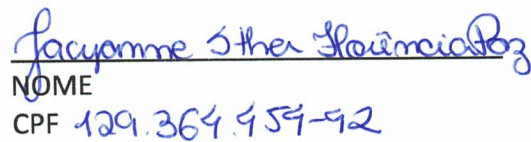 Jacyanne Sther Florência Paz
NOME
CPF 129.364.454-42